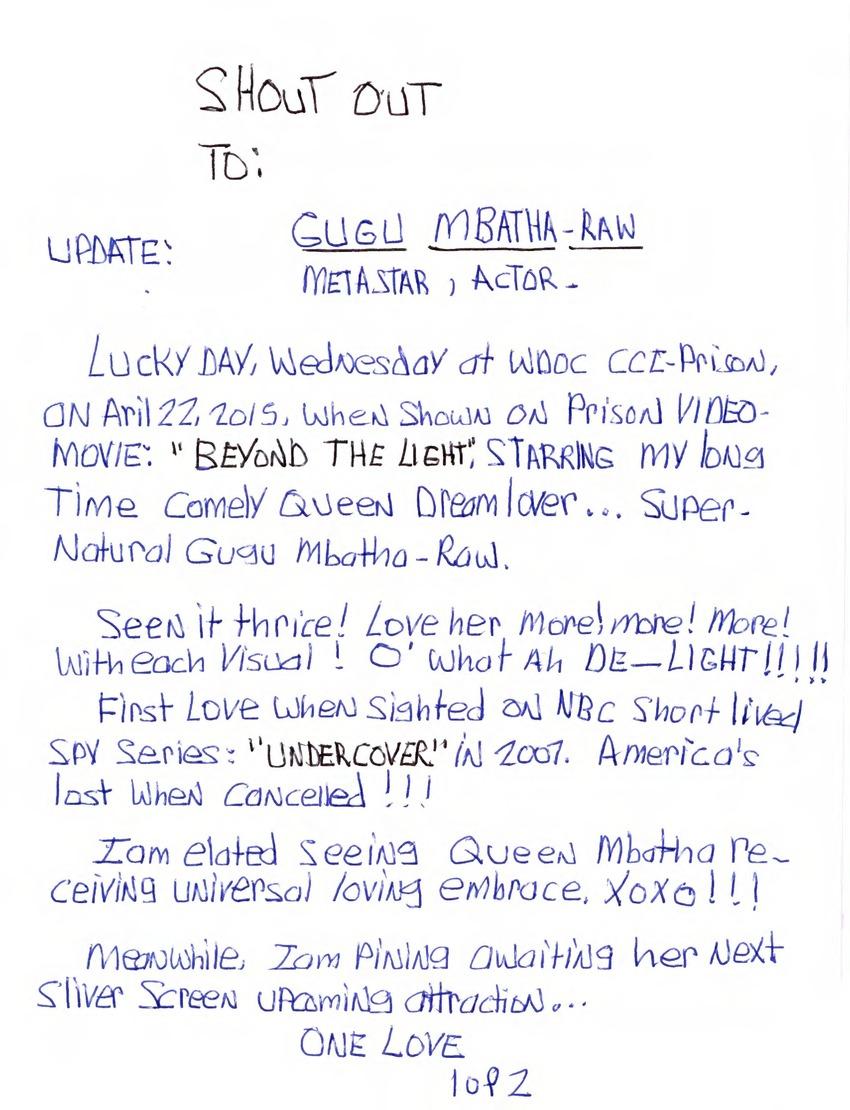 SHOUT OUT
TO:
GUGU MBATHA-RAW
UPDATE:
METASTAR, ACTOR-
LUCKY DAY, Wednesday at WDOC CCI-Prison,
ON Aril 22, 2015, when Shown ON Prison VIDEO-
MOVIE: "BEYOND THE LIGHT", STARRING my long
Time Comely Queen Dreamlover... Super-
Natural Gugu Mbatha-Raw.
Seen it thrice! Love her more! more! More!
With each Visual! O' what Ah DE-LIGHT!!!!!
First Love when Sighted on NBC Short lived
SPY Series: "UNDERCOVER" in 2007. America's
lost When Cancelled!!!
I am elated seeing Queen Mbatha re-
ceiving universal loving embrace. XoXo!!!
Meanwhile, I am Pining awaiting her Next
Sliver Screen upcoming attraction...
ONE LOVE
1 of 2